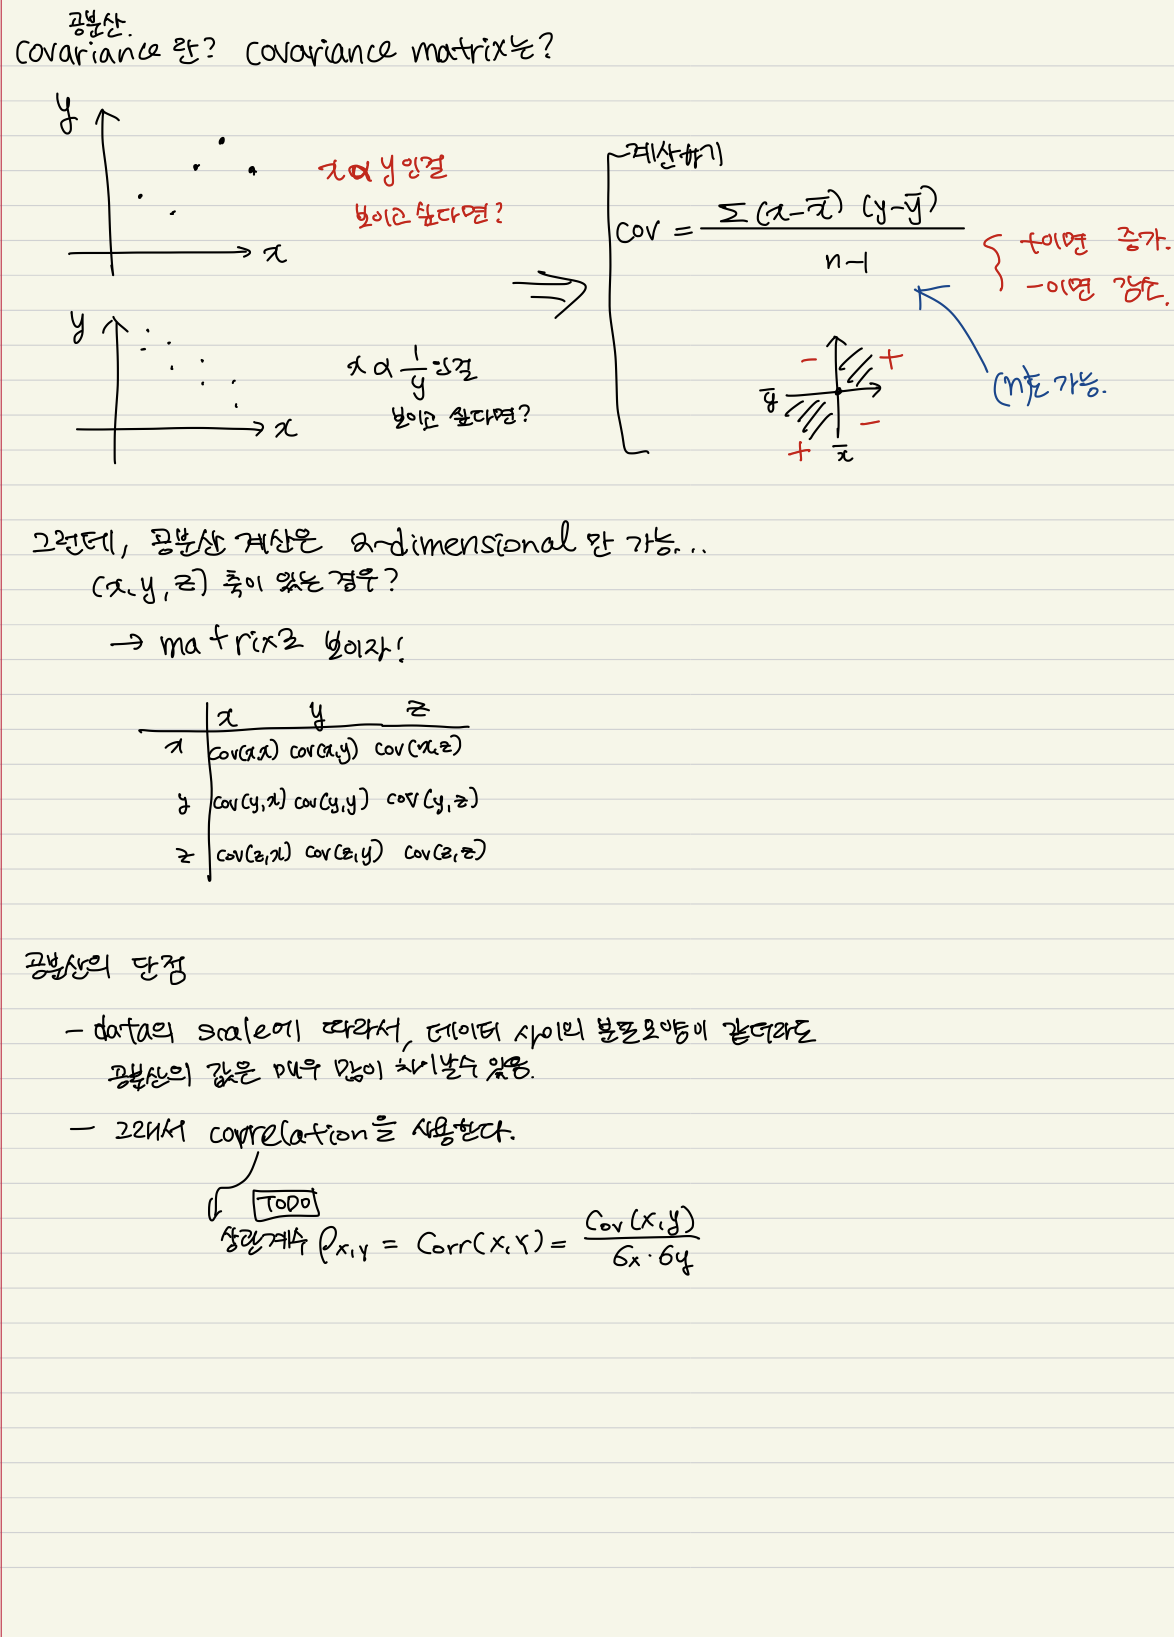 공분산.
covariance란? covariance matrix는?
y
x
x α y 인걸
보이고 싶다면?
y
x
x α 1/y 인걸
보이고 싶다면?
⇒
계산하기
cov = Σ(x-x̄)(y-ȳ) / n-1
+이면 증가.
-이면 감소.
(n)도 가능.
- +
ȳ
+ x̄ -
그런데, 공분산 계산은 2-dimensional만 가능...
(x, y, z) 축이 있는 경우?
→ matrix로 보이자!
x y z
x cov(x,x) cov(x,y) cov(x,z)
y cov(y,x) cov(y,y) cov(y,z)
z cov(z,x) cov(z,y) cov(z,z)
공분산의 단점
- data의 scale에 따라서, 데이터 사이의 분포모양이 같더라도
공분산의 값은 매우 많이 차이날수 있음.
- 그래서 correlation을 사용한다.
TODO
상관계수 ρx,y = Corr(X,Y) = Cov(x,y) / 6x·6y